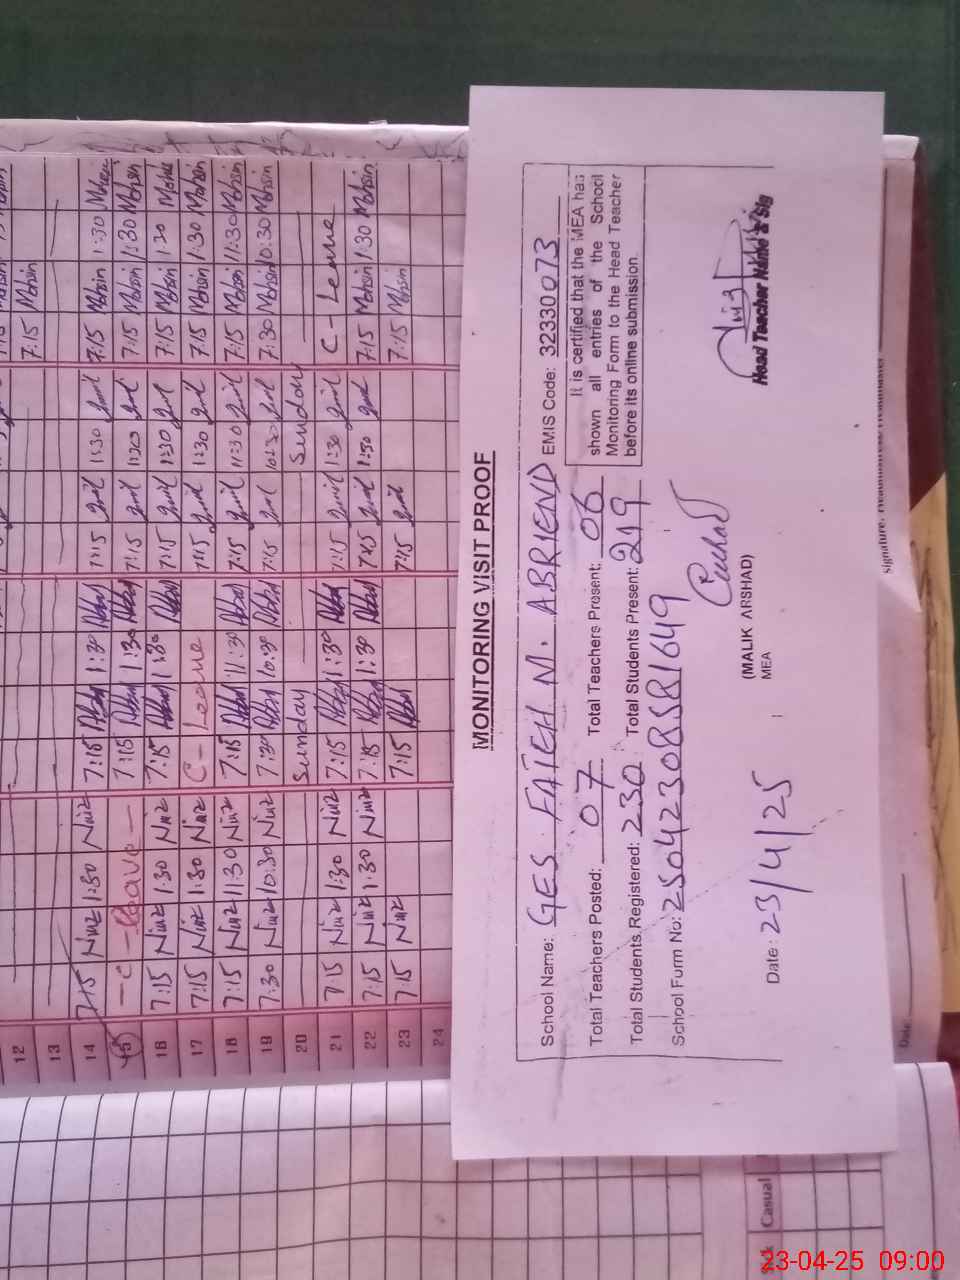 12
13
14 7:15 Niaz 1:30 Niaz 7:15 1:30 7:15 1:30 7:15 Mohsin 1:30 Mohsin
15 - C - Leave - 7:15 1:30 7:15 1:30 7:15 Mohsin 1:30 Mohsin
16 7:15 Niaz 1:30 Niaz 7:15 1:30 7:15 1:30 7:15 Mohsin 1:30 Mohsin
17 7:15 Niaz 1:30 Niaz C - Leave 7:15 1:30 7:15 Mohsin 1:30 Mohsin
18 7:15 Niaz 11:30 Niaz 7:15 11:30 7:15 11:30 7:15 Mohsin 11:30 Mohsin
19 7:30 Niaz 10:30 Niaz 7:30 10:30 7:15 10:30 7:30 Mohsin 10:30 Mohsin
20 Sunday Sunday
21 7:15 Niaz 1:30 Niaz 7:15 1:30 7:15 1:30 C - Leave
22 7:15 Niaz 1:30 Niaz 7:15 1:30 7:15 1:30 7:15 Mohsin 1:30 Mohsin
23 7:15 Niaz 7:15 7:15 7:15 Mohsin
24
MONITORING VISIT PROOF
School Name: GES FATEH M. ABRIEND EMIS Code: 32330073
Total Teachers Posted: 07 Total Teachers Present: 06
Total Students Registered: 230 Total Students Present: 219
School Form No: 25042308581649
It is certified that the MEA has
shown all entries of the School
Monitoring Form to the Head Teacher
before its online submission.
(MALIK ARSHAD)
MEA
Date: 23/4/25
Head Teacher Name & Sig
Date:
Casual
23-04-25 09:00